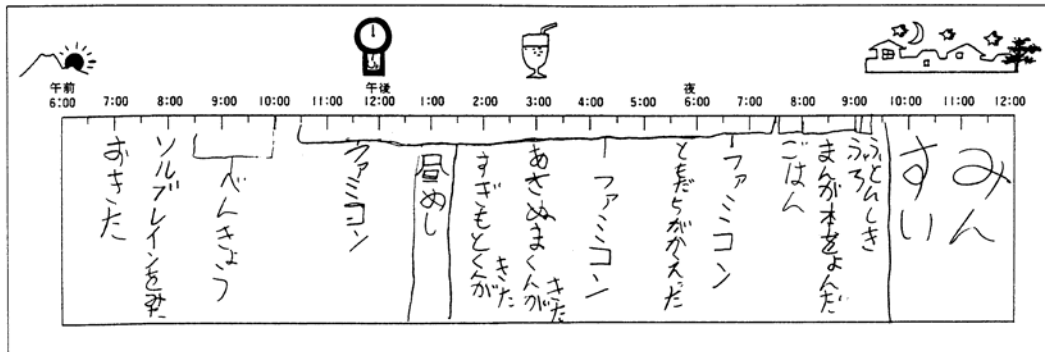 午前 午後 夜
6:00 7:00 8:00 9:00 10:00 11:00 12:00 1:00 2:00 3:00 4:00 5:00 6:00 7:00 8:00 9:00 10:00 11:00 12:00
おきた
ソルブレインをみた
べんきょう
ファミコン
昼めし
すぎもとくんが
きた
あさぬまくんが
きた
ファミコン
ともだちがかえった
ファミコン
ごはん
まんが本をよんだ
ふろ
ふとんしき
すい
みん